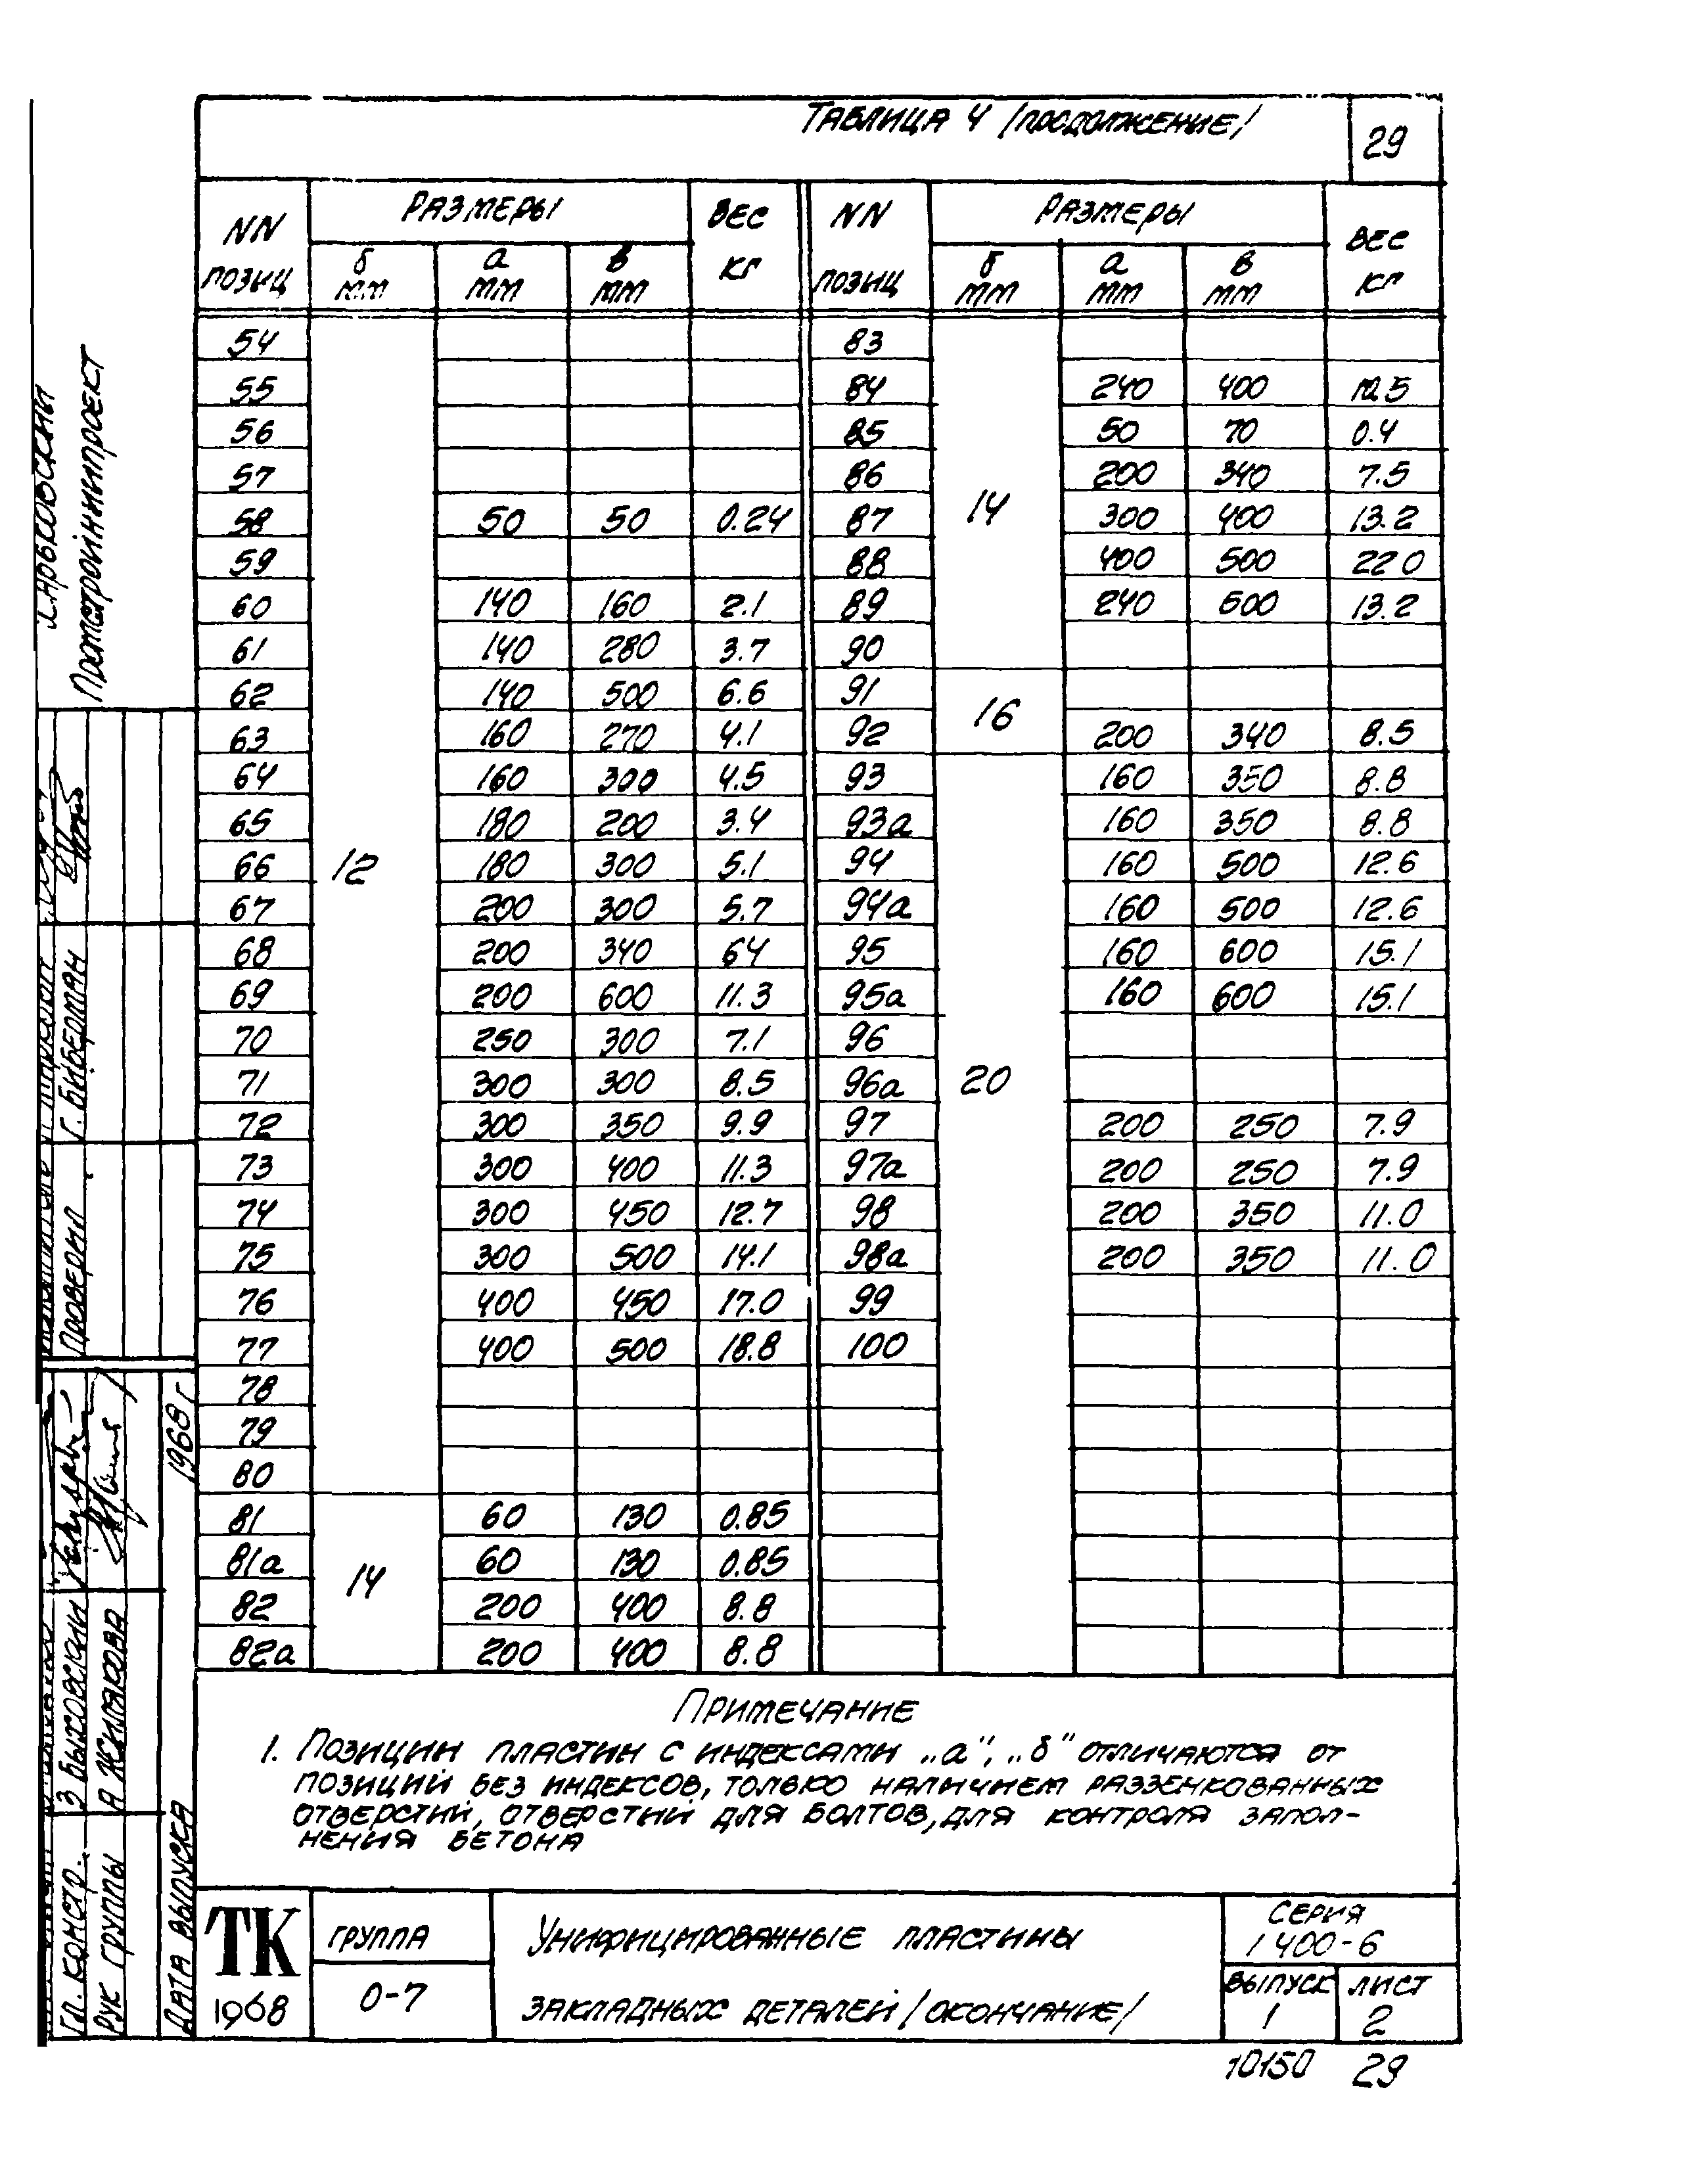 ТАБЛИЦА 4 /ПРОДОЛЖЕНИЕ/ 29
NN ПОЗИЦ РАЗМЕРЫ ВЕС КГ NN ПОЗИЦ РАЗМЕРЫ ВЕС КГ
б мм а мм в мм б мм а мм в мм
54 83
55 84 240 400 10.5
56 85 50 70 0.4
57 86 200 340 7.5
58 50 50 0.24 87 14 300 400 13.2
59 88 400 500 22 0
60 140 160 2.1 89 240 500 13.2
61 140 280 3.7 90
62 140 500 6.6 91 16
63 160 270 4.1 92 200 340 8.5
64 160 300 4.5 93 160 350 8.8
65 180 200 3.4 93а 160 350 8.8
66 12 180 300 5.1 94 160 500 12.6
67 200 300 5.7 94а 160 500 12.6
68 200 340 64 95 160 600 15.1
69 200 600 11.3 95а 160 600 15.1
70 250 300 7.1 96
71 300 300 8.5 96а 20
72 300 350 9.9 97 200 250 7.9
73 300 400 11.3 97а 200 250 7.9
74 300 450 12.7 98 200 350 11.0
75 300 500 14.1 98а 200 350 11.0
76 400 450 17.0 99
77 400 500 18.8 100
78
79
80
81 60 130 0.85
81а 14 60 130 0.85
82 200 400 8.8
82а 200 400 8.8
ПРИМЕЧАНИЕ
1. ПОЗИЦИИ ПЛАСТИН С ИНДЕКСАМИ „а", „б" ОТЛИЧАЮТСЯ ОТ
ПОЗИЦИЙ БЕЗ ИНДЕКСОВ, ТОЛЬКО НАЛИЧИЕМ РАЗЗЕНКОВАННЫХ
ОТВЕРСТИЙ, ОТВЕРСТИЙ ДЛЯ БОЛТОВ, ДЛЯ КОНТРОЛЯ ЗАПОЛ-
НЕНИЯ БЕТОНА
ТК
1968
ГРУППА
0-7
УНИФИЦИРОВАННЫЕ ПЛАСТИНЫ
ЗАКЛАДНЫХ ДЕТАЛЕЙ /ОКОНЧАНИЕ/
СЕРИЯ
1 400-6
ВЫПУСК
1
ЛИСТ
2
10150 29
ХАРЬКОВСКИЙ
ПРОМСТРОЙНИИПРОЕКТ
Г. БИБЕРМАН
ПРОВЕРИЛ
ГЛ. КОНСТР. З БЫХОВСКИЙ
РУК ГРУППЫ А ЖИЛЯКОВА
ДАТА ВЫПУСКА 1968 г